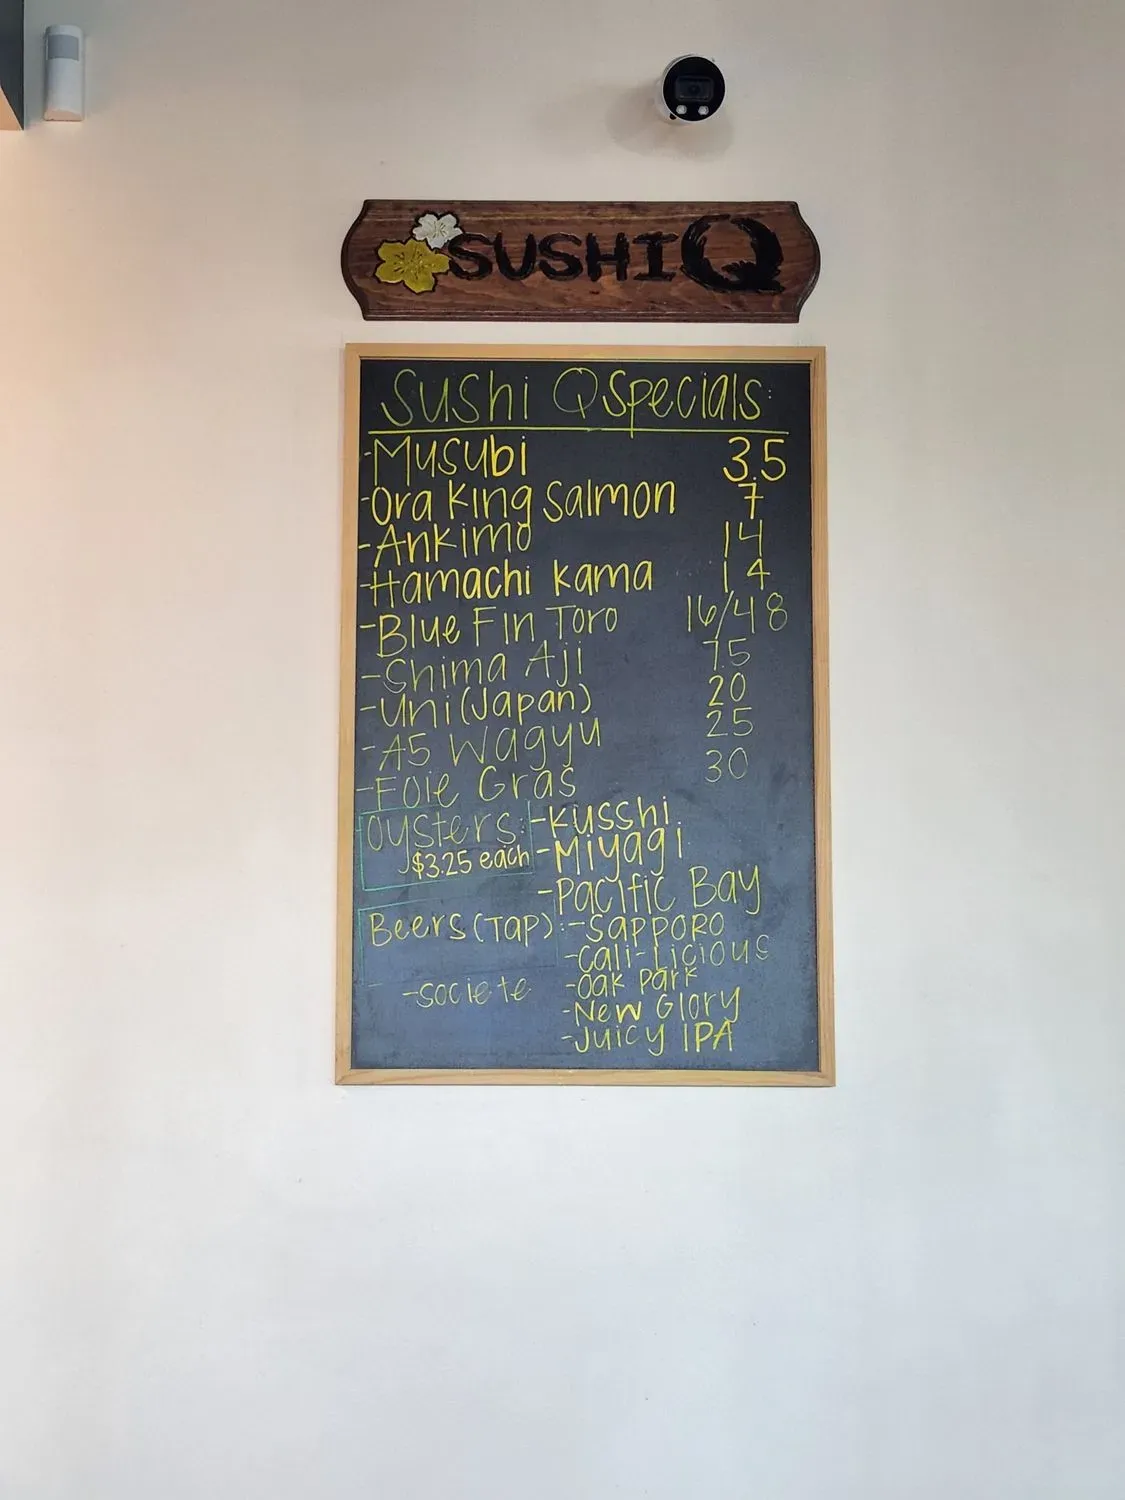 SUSHI Q
Sushi Q Specials:
-Musubi 3.5
-Ora King Salmon 7
-Ankimo 14
-Hamachi Kama 14
-Blue Fin Toro 16/48
-Shima Aji 7.5
-Uni (Japan) 20
-A5 Wagyu 25
-Foie Gras 30
Oysters: -Kusshi
$3.25 each -Miyagi
-Pacific Bay
Beers (Tap): -Sapporo
-Cali-Licious
-Societe -Oak Park
-New Glory
-Juicy IPA